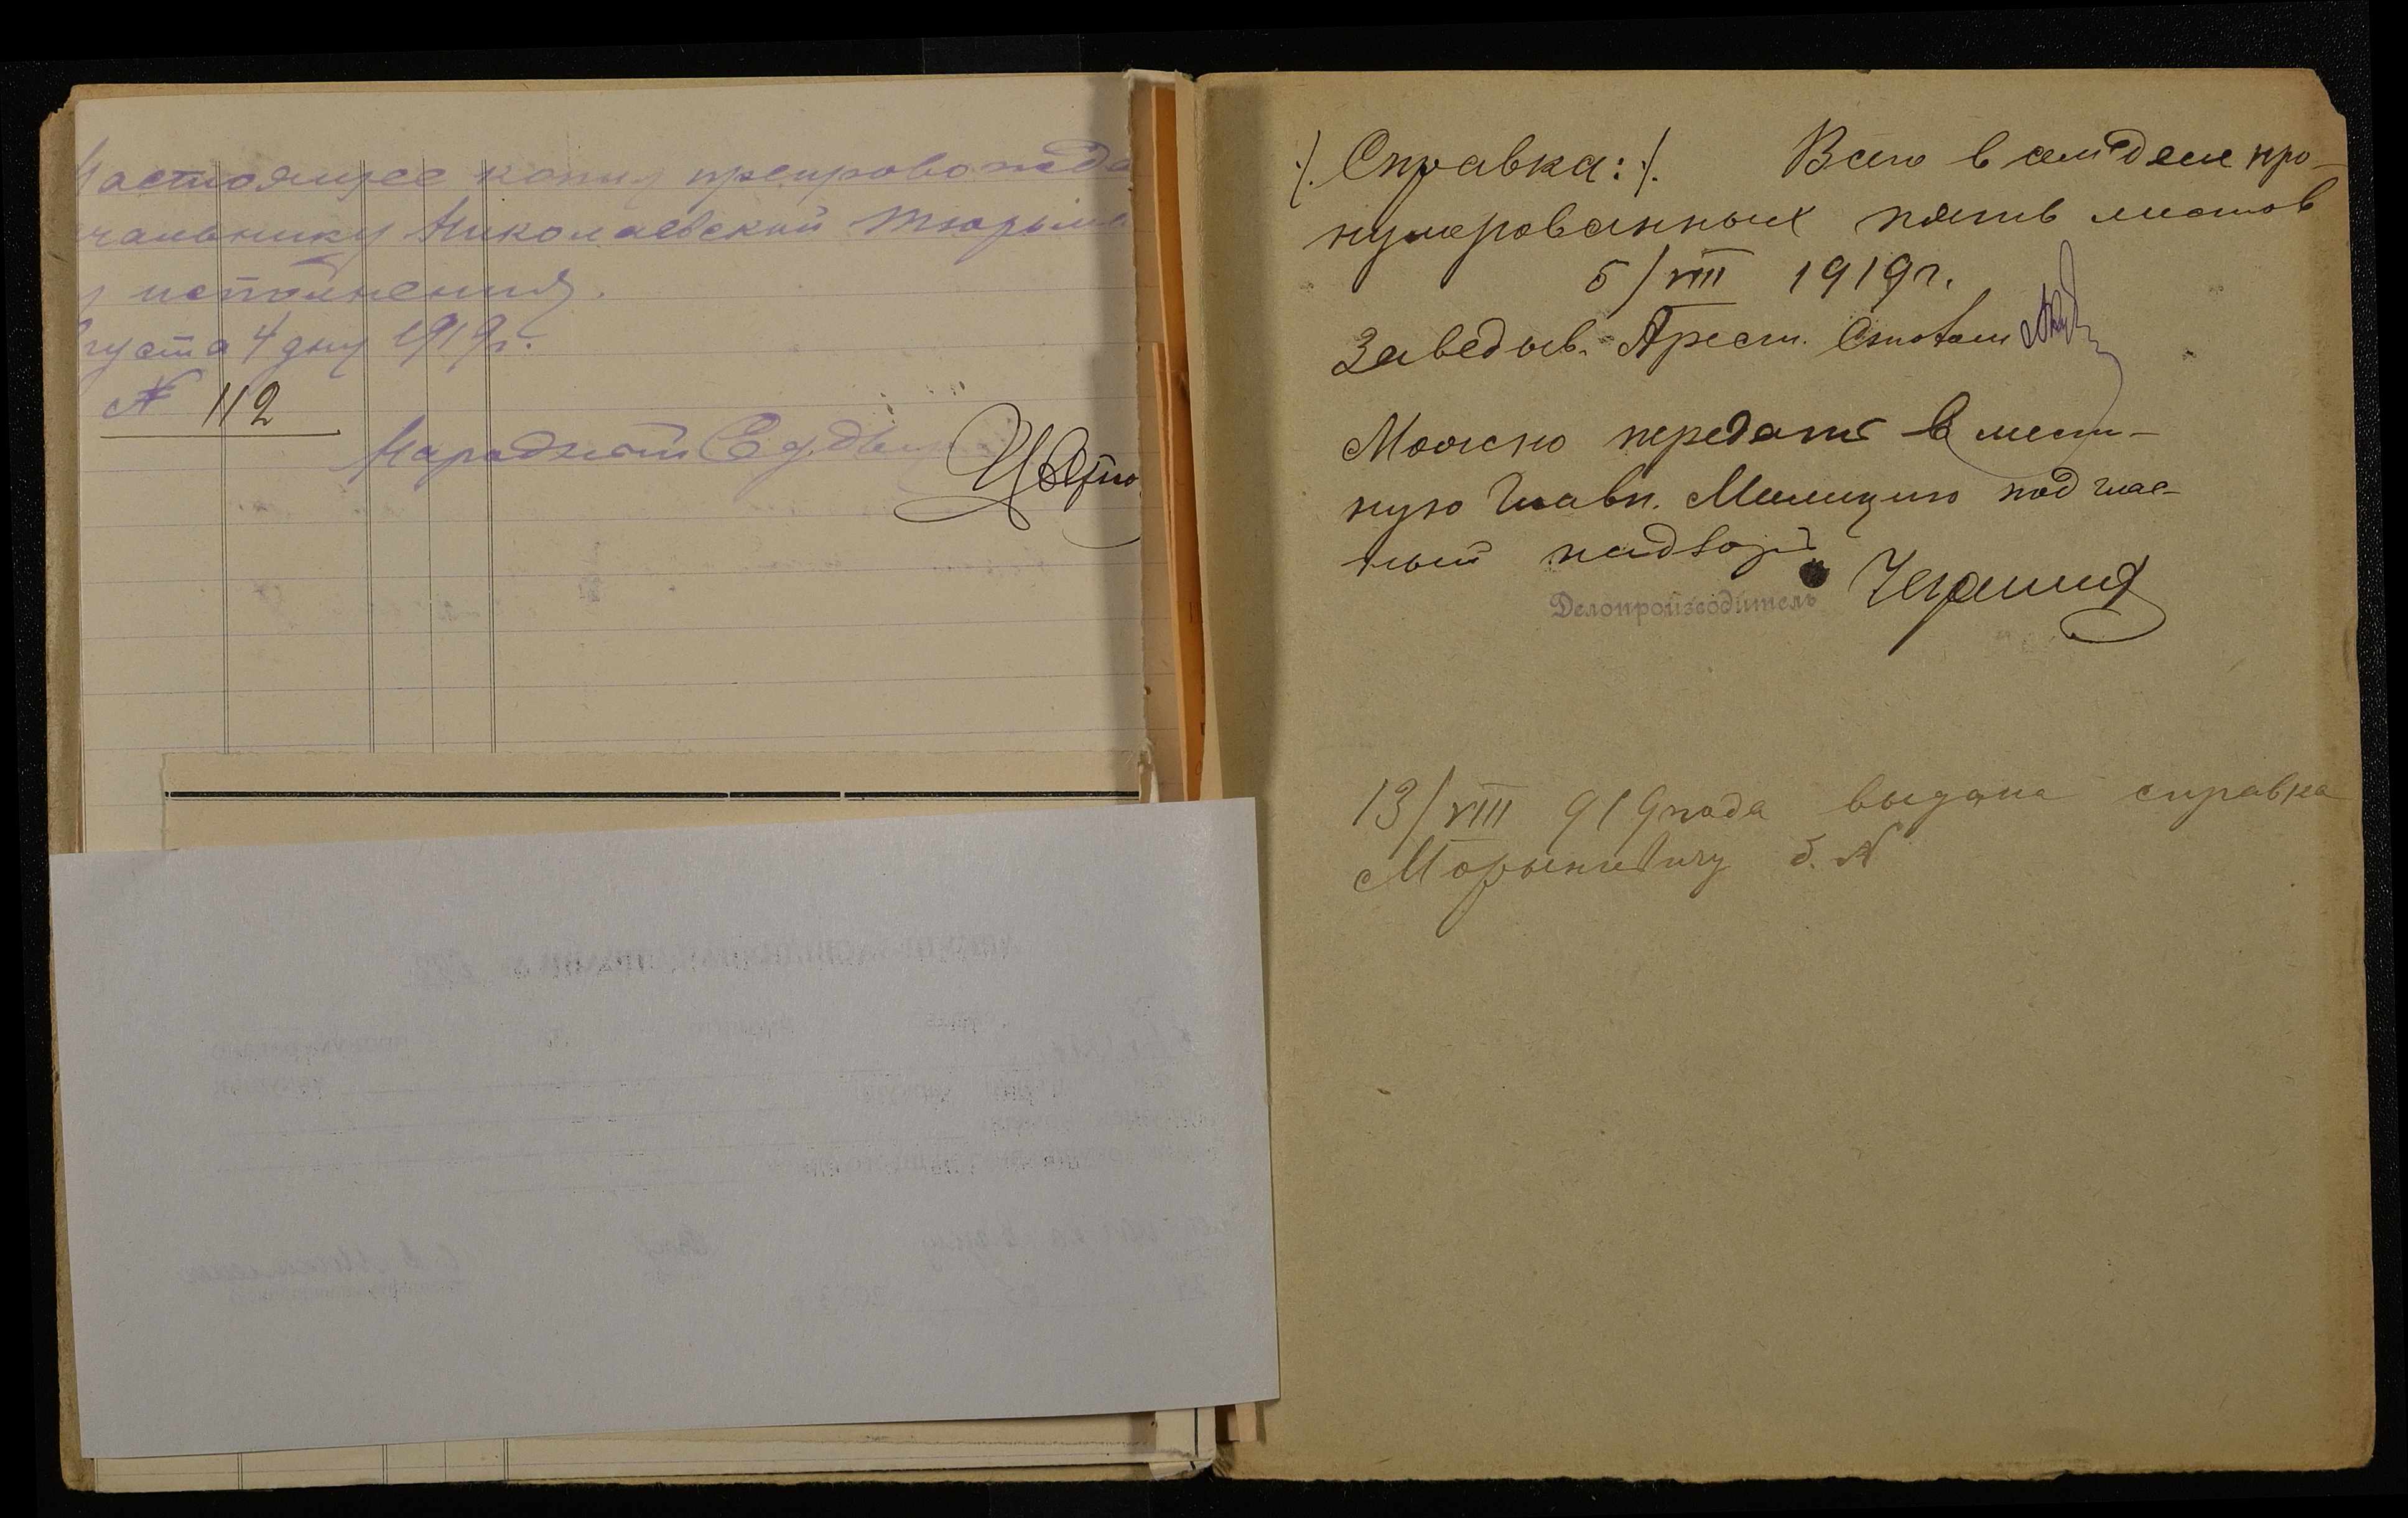 астоящее копию препровожда
чальнику Николаевской тюрьмы
исполнения.
густа 4 дня 1919г.
№ 112
Народный Судья
./. Справка: ./. Всего в сем деле про-
нумерованных пять листов
5/VIII 1919г.
Заведыв. Арест. Столом
Можно передать в мест-
ную Главн. Милицию под глас-
ный надзор
Делопроизводитель
13/VIII 919 года выдана справка